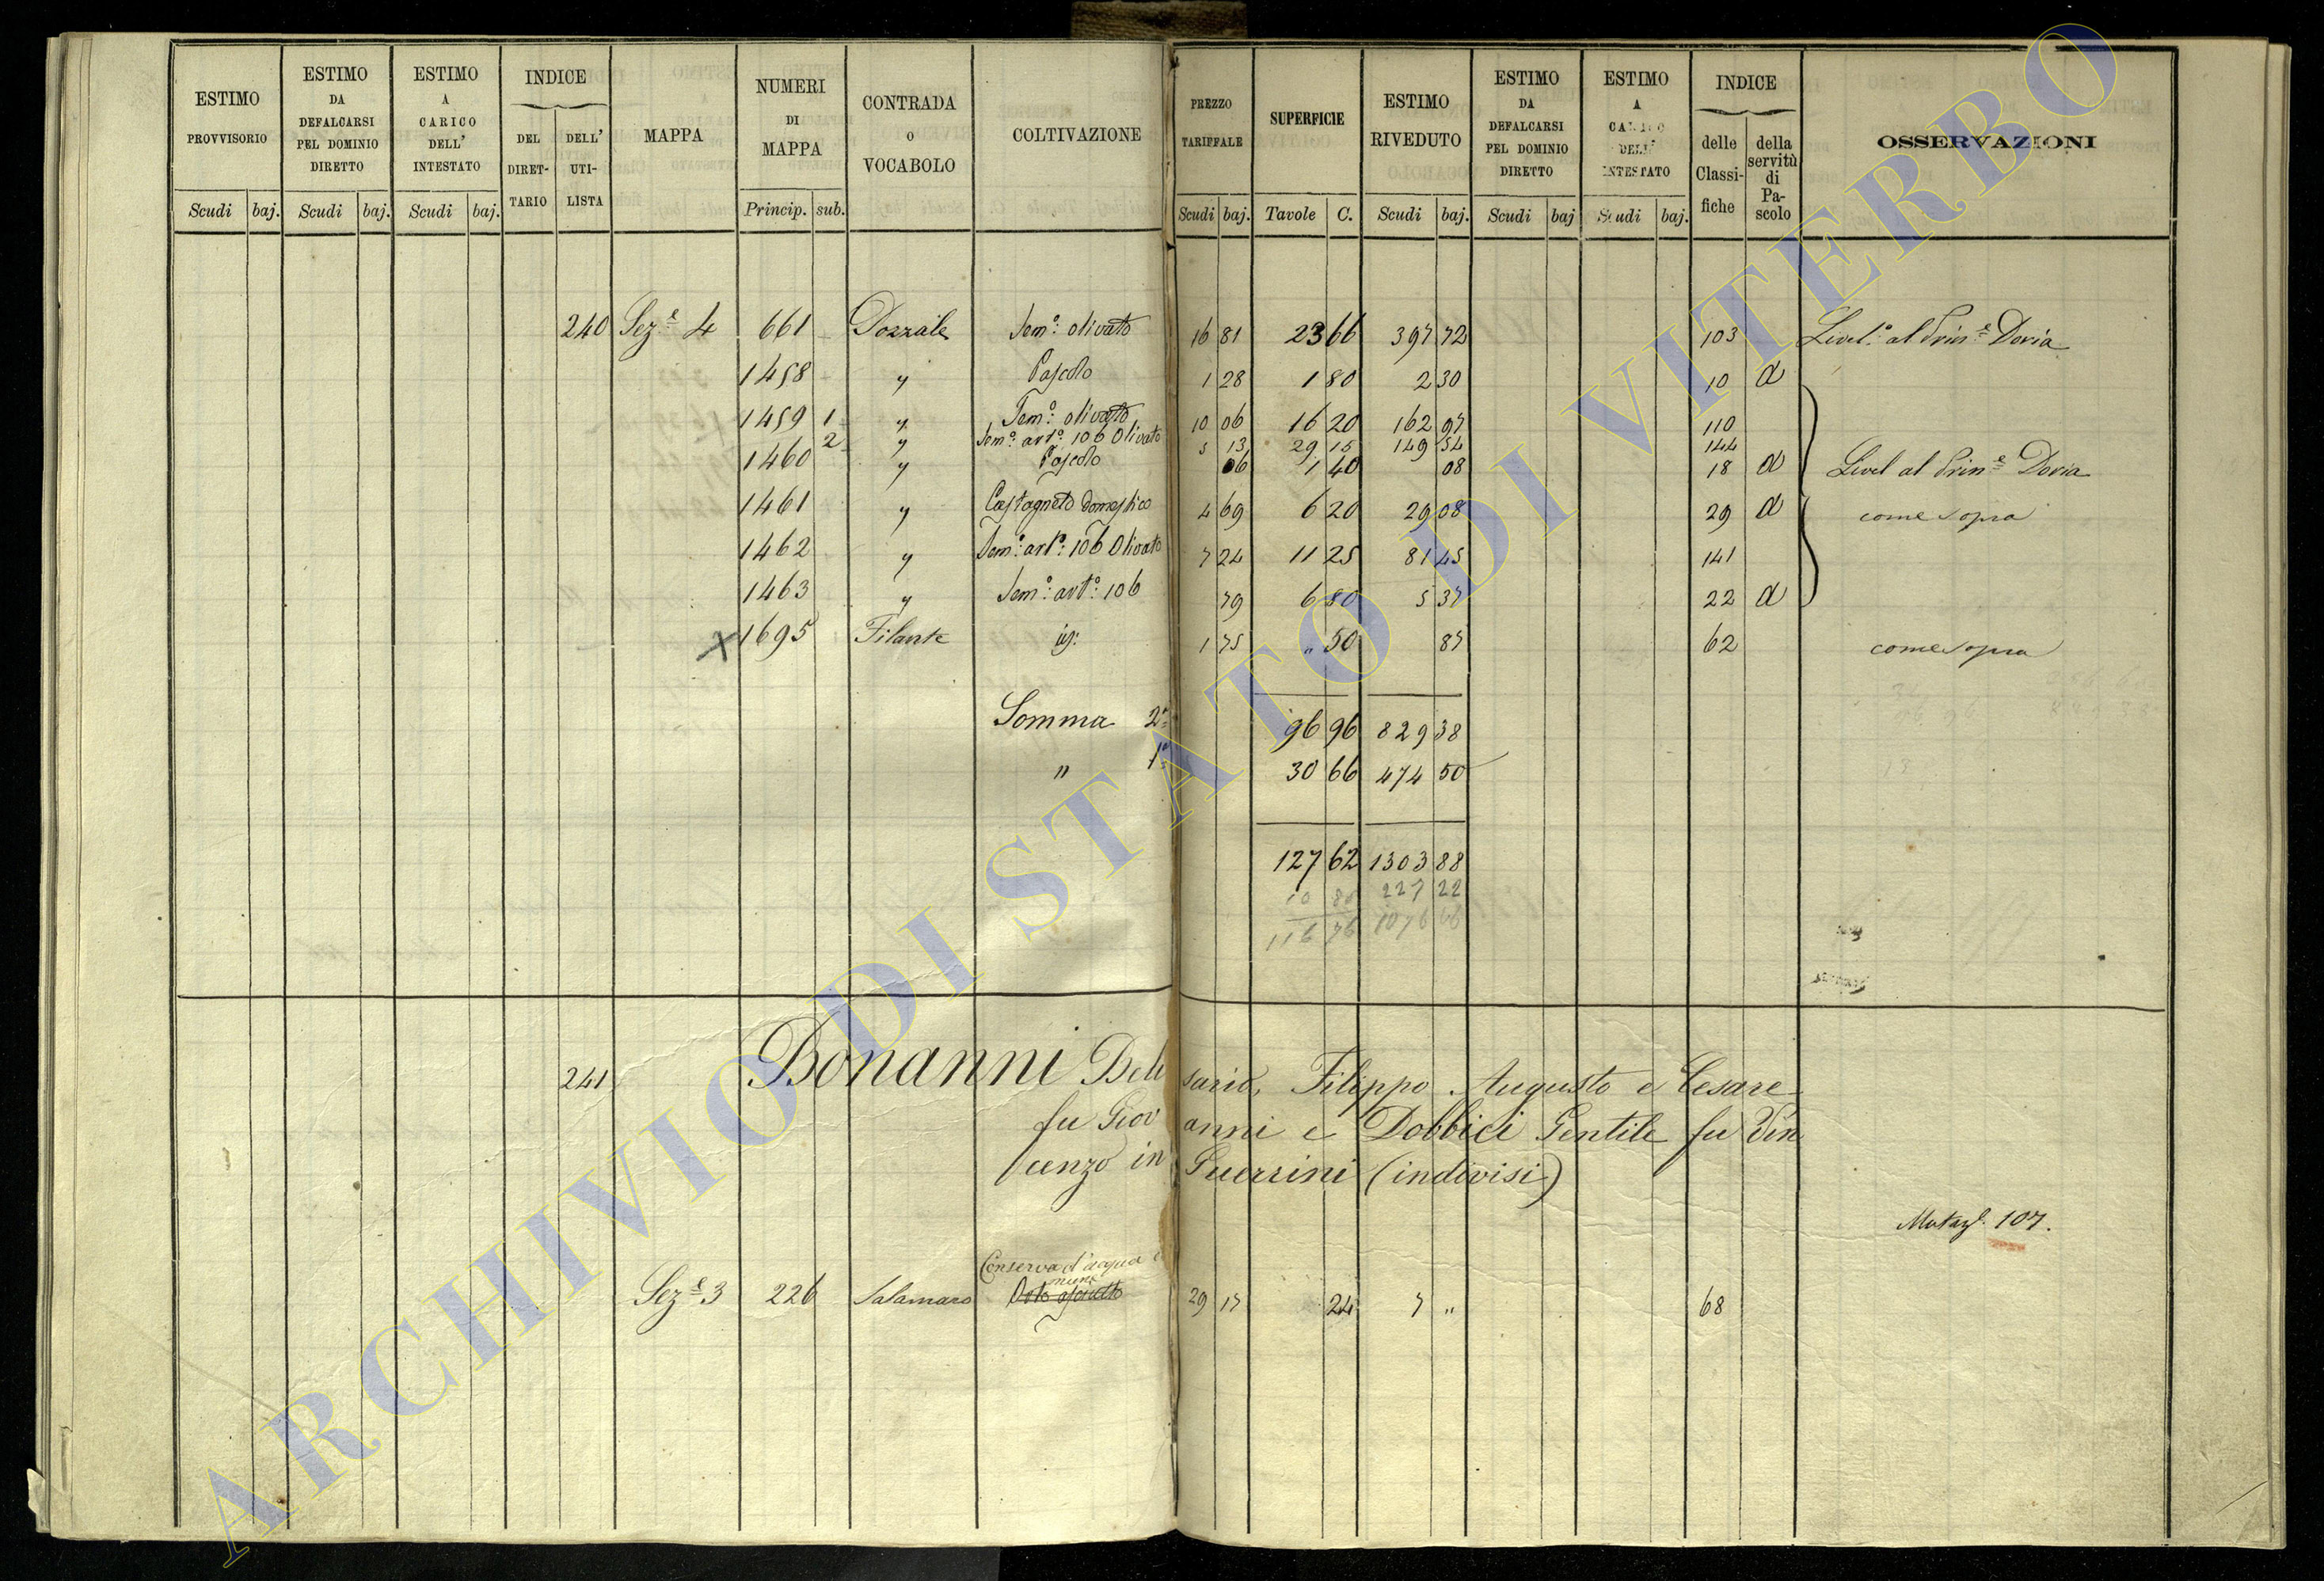 ESTIMO PROVVISORIO
Scudi baj.
ESTIMO DA DEFALCARSI PEL DOMINIO DIRETTO
Scudi baj.
ESTIMO A CARICO DELL' INTESTATO
Scudi baj.
INDICE
DEL DIRET-TARIO
DELL' UTI-LISTA
MAPPA
NUMERI DI MAPPA
Princip. sub.
CONTRADA O VOCABOLO
COLTIVAZIONE
PREZZO TARIFFALE
Scudi baj.
SUPERFICIE
Tavole C.
ESTIMO RIVEDUTO
Scudi baj.
ESTIMO DA DEFALCARSI PEL DOMINIO DIRETTO
Scudi baj
ESTIMO A CARICO DELL' INTESTATO
Scudi baj.
INDICE
delle Classi-fiche
della servitù di Pa-scolo
OSSERVAZIONI
240 Sez.e 4 661 Pozzale Sem.o olivato 16 81 23 66 397 72 103 Livel.o al Prin.e Doria
1458 " Pascolo 1 28 1 80 2 30 10 d
1459 1 " Sem.o olivato 10 06 16 20 162 97 110
2 " Sem.o art.o 106 Olivato 5 13 29 15 149 54 144
1460 " Pascolo 06 1 40 08 18 d Livel al Prin.e Doria
1461 " Castagneto Domestico 4 69 6 20 29 08 29 d come sopra
1462 " Sem.o art.o 106 Olivato 7 24 11 25 81 45 141
1463 " Sem.o art.o 106 79 6 80 5 37 22 d
X 1695 Filante id: 1 75 " 50 87 62 come sopra
Somma 2.a 96 96 829 38
" 1.a 30 66 474 50
127 62 1303 88
10 86 227 22
116 76 1076 66
241 Bonanni Belisario, Filippo Augusto e Cesare
fu Giovanni e Dobbici Gentile fu Vin
cenzo in Guerrini (indivisi)
Mutaz.e 107.
Conserva d'acqua e
muro
Sez.e 3 226 Salamaro Orto asciutto 29 17 24 7 " 68
ARCHIVIO DI STATO DI VITERBO